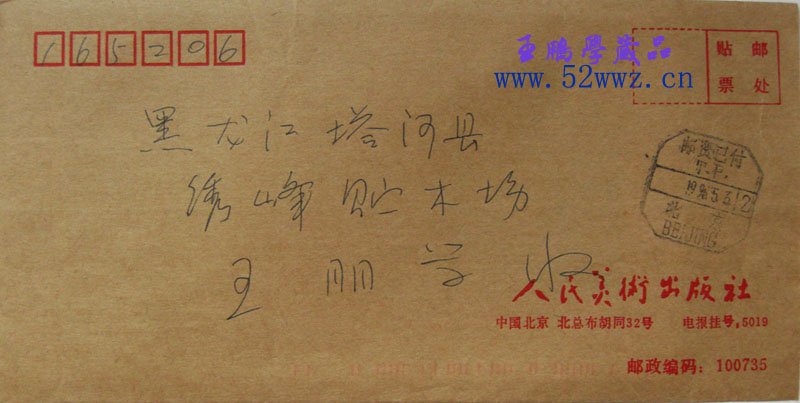 165206
王鹏學藏品
www.52wwz.cn
贴 邮
票 处
黑龙江塔河县
绣峰贮木场
王朋学收
邮资已付
P.P.
北京
BEIJING
人民美術出版社
中国北京 北总布胡同32号 电报挂号,5019
邮政编码：100735